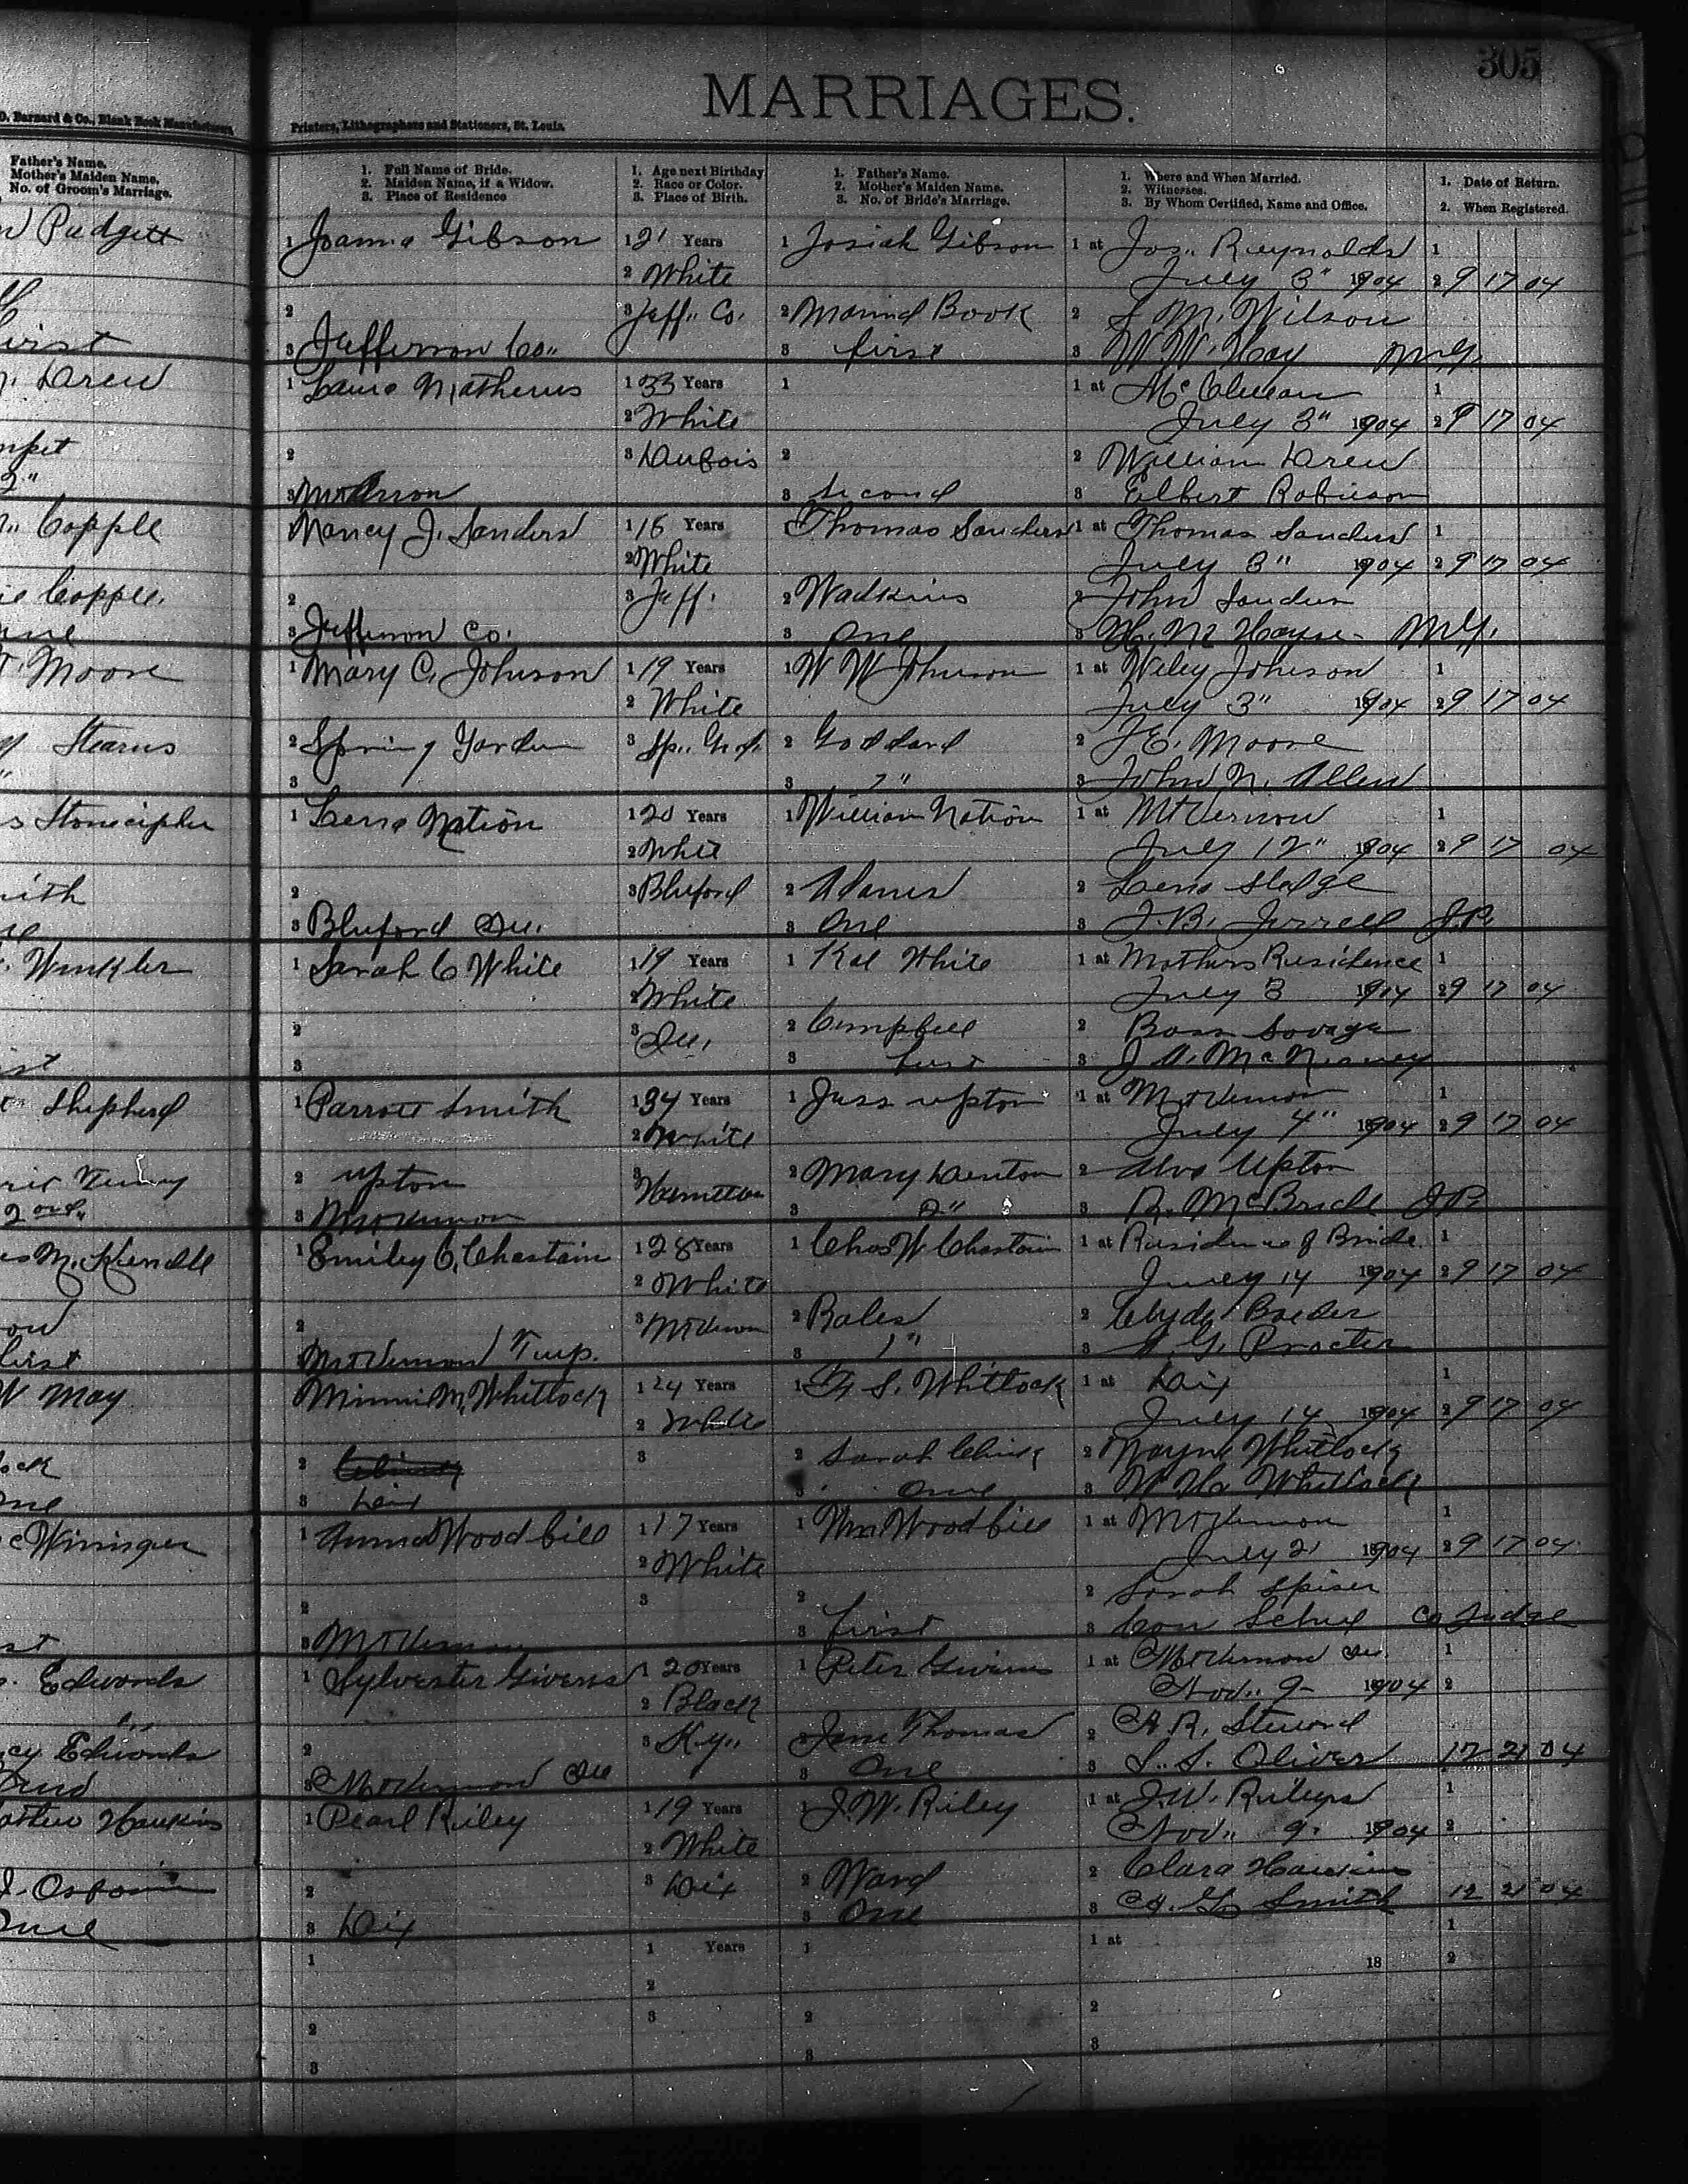 305
MARRIAGES.
D. Barnard & Co., Blank Book Manufacturers,
Printers, Lithographers and Stationers, St. Louis.
Father's Name.
Mother's Maiden Name.
No. of Groom's Marriage.
1. Full Name of Bride.
2. Maiden Name, if a Widow.
3. Place of Residence
1. Age next Birthday
2. Race or Color.
3. Place of Birth.
1. Father's Name.
2. Mother's Maiden Name.
3. No. of Bride's Marriage.
1. Where and When Married.
2. Witnesses.
3. By Whom Certified, Name and Office.
1. Date of Return.
2. When Registered.
Padgett
1 Joanna Gibson 1 21 Years 1 Josiah Gibson 1 at Jos.. Reynolds 1
2 White July 3" 1904 2 9 17 04
2 3 Jeff.. Co. 2 Book 2 S M. Wilson
irst 3 Jefferson Co.. 3 first 3 W. W. Hay M.G.
Drew 1 Laura Matherus 1 33 Years 1 1 at McClellan 1
2 White July 3" 1904 2 9 17 04
2 3 DuBois 2 2 William Drew
2" 3 Mt Vernon 3 Second 3 Elbert Robinson
Copple Nancy J. Sanders 1 16 Years Thomas Sanders 1 at Thomas Sanders 1
2 White July 3" 1904 2 9 17 04
Copple. 2 3 Jeff. 2 Wadkins 2 John Sanders
3 Jefferson Co. 3 One 3 M.G.
Moore 1 Mary C. Johnson 1 19 Years 1 W W Johnson 1 at Wiley Johnson 1
2 White July 3" 1904 2 9 17 04
Stearns 2 Spring Garden 3 Sp.. Grd. 2 Goddard 2 J E. Moore
3 3 1" 3 John N. Allen
s Stonecipher 1 Lena Nation 1 20 Years 1 William Nation 1 at Mt Vernon 1
2 White July 12" 1904 2 9 17 04
ith 2 3 Bluford 2 Adams 2 Lena Sledge
3 Bluford Ill. 3 One 3 J. B. Jerrell J.P.
Winkler 1 Sarah C White 1 19 Years 1 White 1 at Mothers Residence 1
2 White July 3 1904 2 9 17 04
2 3 Ill. 2 Campbell 2 Bass Savage
st 3 3 first 3
Shepherd 1 Parrott Smith 1 34 Years 1 Jess Upton 1 at Mt Vernon 1
2 White July 4" 1904 2 9 17 04
2 Upton 3 Hamilton 2 Mary Denton 2 Alva Upton
2 ond. 3 Mt Vernon 3 2" 3 R. McBride J.P.
1 Emiley C. Chastain 1 28 Years 1 Chas W Chastain 1 at Residence of Bride 1
2 White July 14 1904 2 9 17 04
2 3 Mt Vernon 2 Bales 2 Clyde
first Mt Vernon Twp. 3 1" 3 A. G. Procter
W May Minnie M. Whitlock 1 24 Years 1 S. Whitlock 1 at Dix 1
2 White July 14 1904 2 9 17 04
2 3 2 Sarah 2 Wayne Whitlock
3 Dix 3 One 3 Whitlock
Winisger 1 Anna Woodbill 1 17 Years 1 Wm Woodbill 1 at Mt Vernon 1
2 White July 21 1904 2 9 17 04
2 3 2 2 Sarah Spiser
st 3 Mt Vernon 3 first 3 Con Schul Co Judge
Edwards 1 Sylvester Givens 1 20 Years 1 Peter Givens 1 at Mt Vernon Ill. 1
2 Black Nov.. 9 1904 2
cy Edwards 2 3 Ky.. 2 Jane Thomas 2 A. R. Steward
3 Mt Vernon Ill 3 One 3 S. S. Oliver 12 21 04
Hawkins 1 Pearl Riley 1 19 Years 1 J. W. Riley 1 at J. W. Rileys 1
2 White Nov.. 9. 1904 2
2 3 Dix 2 Ward 2 Clara Hawkins
3 Dix 3 One 3 Smith 12 21 04
1 1 Years 1 1 at 1
2 18 2
2 3 2 2
3 3 3